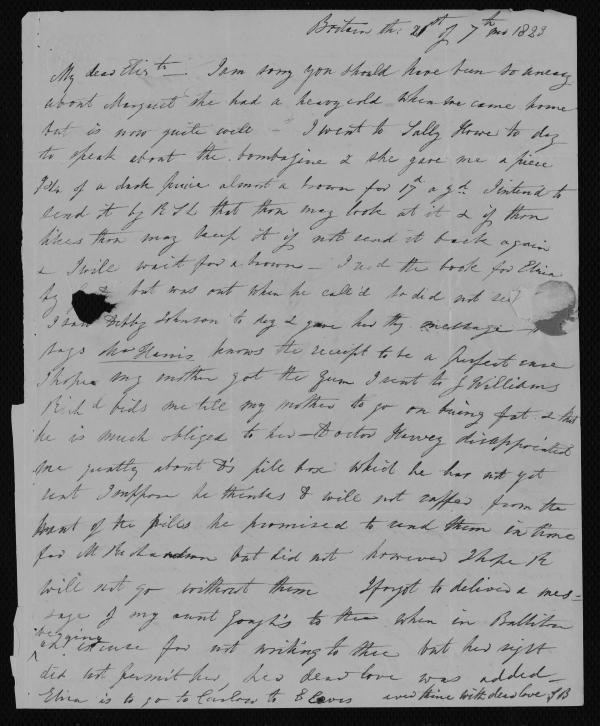 Britain th: 21st of 7th mo 1823
My dear Eliz.th — I am sorry you should have been so uneasy
about Margaret she had a heavy cold when we came home
but is now quite well — I went to Sally Howe to day
to speak about the bombazine & she gave me a piece
of a dark almost a brown for 17d a yd. I intend to
send it by R S L that thou may look at it & if thou
likes thou may keep it if not send it back again
& I will wait for a brown — I the book for Elvira
by but was out when he call'd so did not see
I saw Debby Johnson to day & gave her thy message
says Harris knows the receipt to be a perfect cure
I hope my mother got the Gum I sent to J Williams
Rich.d bids me tell my mother to go on being fat & that
he is much obliged to her — Doctor Harvey disappointed
me greatly about D's pill box which he has not yet
sent I suppose he thinks D will not suffer from the
want of the pills he promised to send them in time
for M Richardson but did not however I hope R
will not go without them I forgot to deliver a mes-
sage of my aunt Gough's to thee when in Ballitore
begging
an excuse for not writing to thee but her sight
did not permit her, her dear love was added —
is to go to Carlow to E Coves ever thine with dear love S B